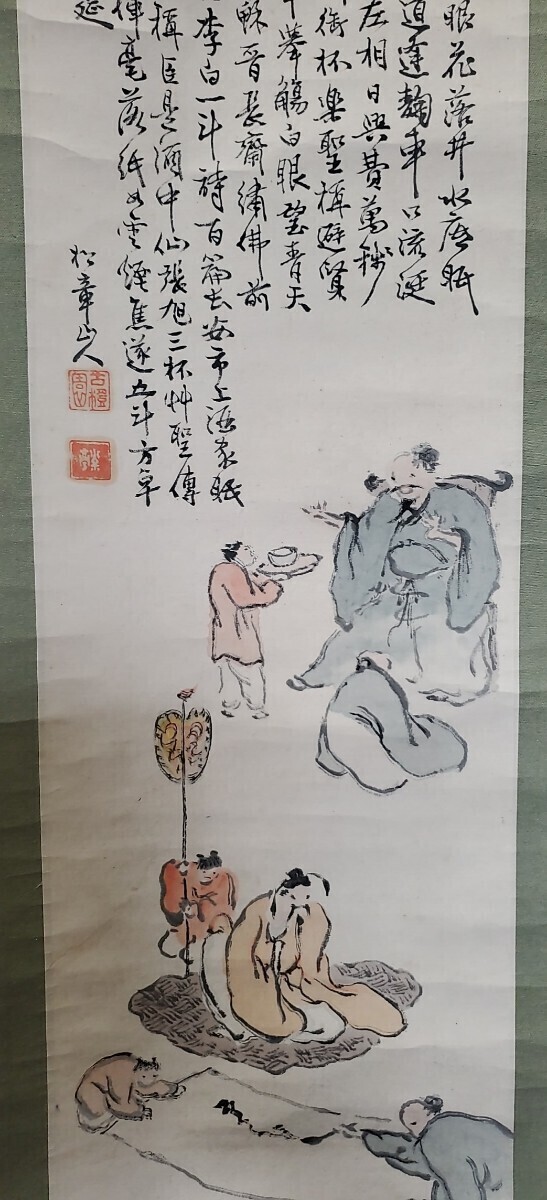 眼花落井水底眠
道逢麹車口流涎
左相日興費萬錢
銜杯楽聖稱避賢
擧觴白眼望青天
蘇晋長齋繡佛前
李白一斗詩百篇長安市上酒家眠
稱臣是酒中仙張旭三杯艸聖傳
揮毫落紙如雲煙焦遂五斗方卓
筵
松章山人